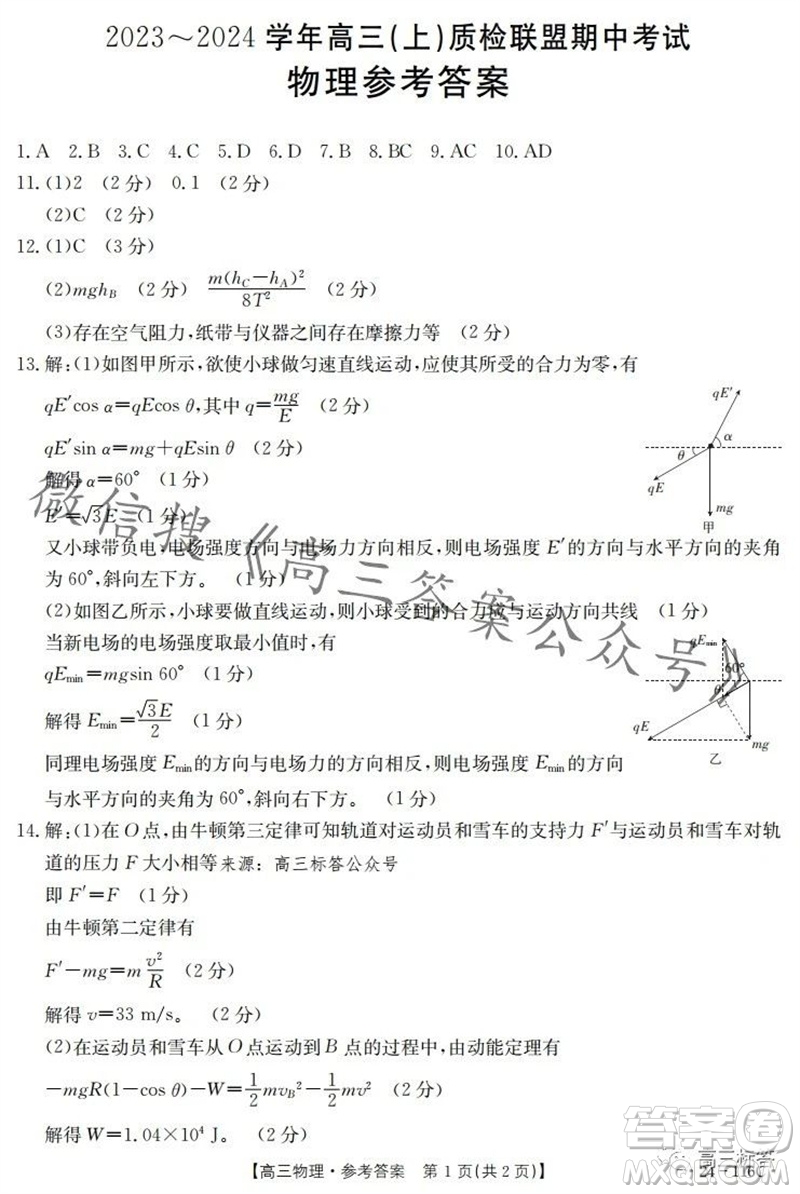 2023～2024 学年高三(上)质检联盟期中考试
物理参考答案
1. A 2. B 3. C 4. C 5. D 6. B 7. B 8. BC 9. AC 10. AD
11. (1)2 (2 分) 0.1 (2 分)
(2)C (2 分)
12. (1)C (3 分)
(2)mgh_B (2 分) m(h_C－h_A)²/8T² (2 分)
(3)存在空气阻力,纸带与仪器之间存在摩擦力等 (2 分)
13. 解:(1)如图甲所示,欲使小球做匀速直线运动,应使其所受的合力为零,有
qE′cos α＝qEcos θ,其中 q＝mg/E (2 分)
qE′sin α＝mg＋qEsin θ (2 分)
解得 α＝60° (1 分)
E′＝√3E (1 分)
又小球带负电,电场强度方向与电场力方向相反,则电场强度 E′的方向与水平方向的夹角
为 60°,斜向左下方。 (1 分)
qE′
α
θ
qE
mg
甲
(2)如图乙所示,小球要做直线运动,则小球受到的合力应与运动方向共线 (1 分)
当新电场的电场强度取最小值时,有
qE_min＝mgsin 60° (1 分)
解得 E_min＝√3E/2 (1 分)
同理电场强度 E_min的方向与电场力的方向相反,则电场强度 E_min的方向
与水平方向的夹角为 60°,斜向右下方。 (1 分)
qE_min
60°
θ
qE
mg
乙
14. 解:(1)在 O 点,由牛顿第三定律可知轨道对运动员和雪车的支持力 F′与运动员和雪车对轨
道的压力 F 大小相等来源：高三标答公众号
即 F′＝F (1 分)
由牛顿第二定律有
F′－mg＝m v²/R (2 分)
解得 v＝33 m/s。 (2 分)
(2)在运动员和雪车从 O 点运动到 B 点的过程中,由动能定理有
－mgR(1－cos θ)－W＝1/2 mv_B²－1/2 mv² (2 分)
解得 W＝1.04×10⁴ J。 (2 分)
【高三物理・参考答案 第 1 页(共 2 页)】
微信搜《高三答案公众号》
高三标答